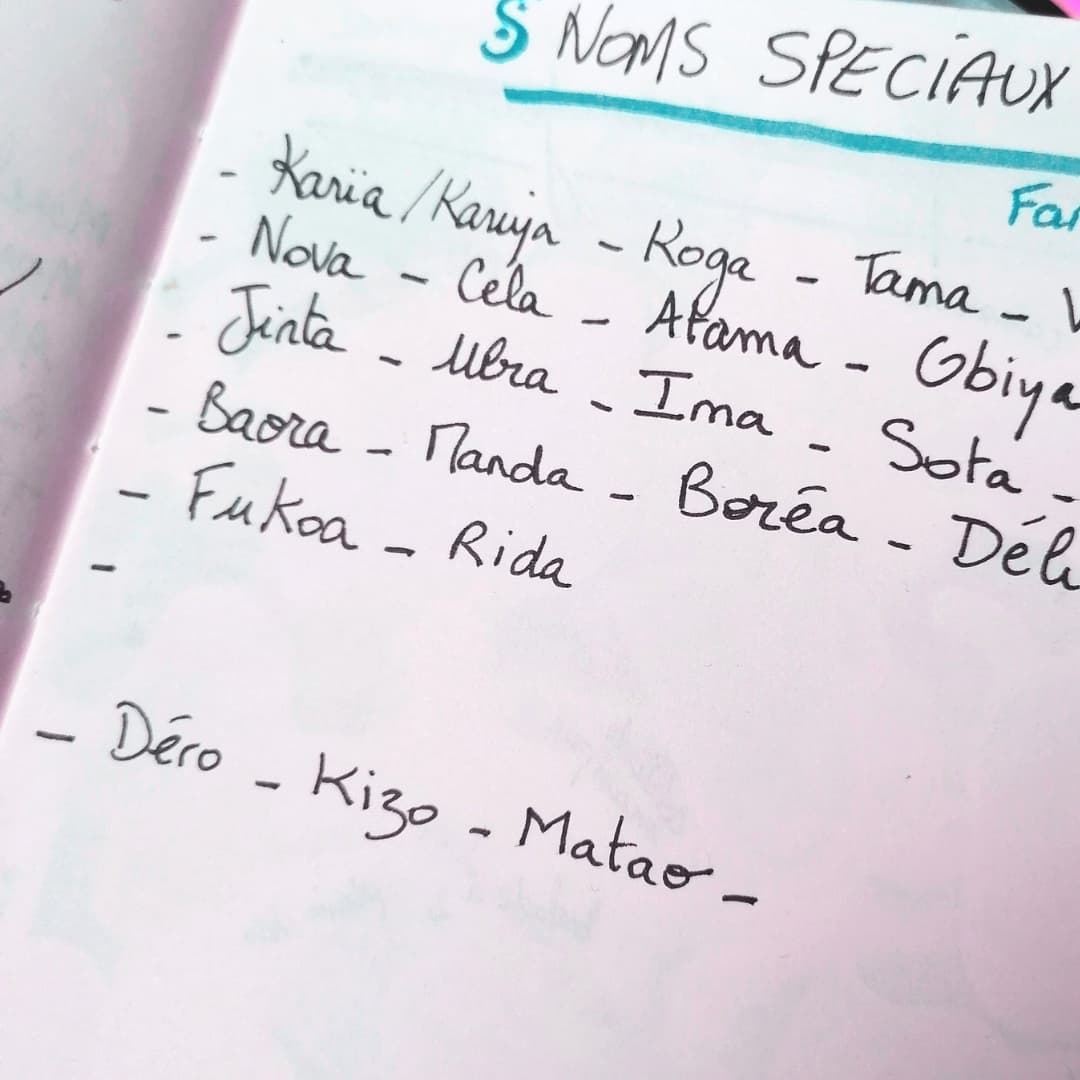 § NOMS SPECIAUX
- Karïa / Karuya - Koga - Tama -
- Nova - Cela - Atama - Obiya
- Jinta - Ubra - Ima - Sota -
- Baora - Manda - Boréa -
- Fukoa - Rida
-
- Déro - Kizo - Matao -